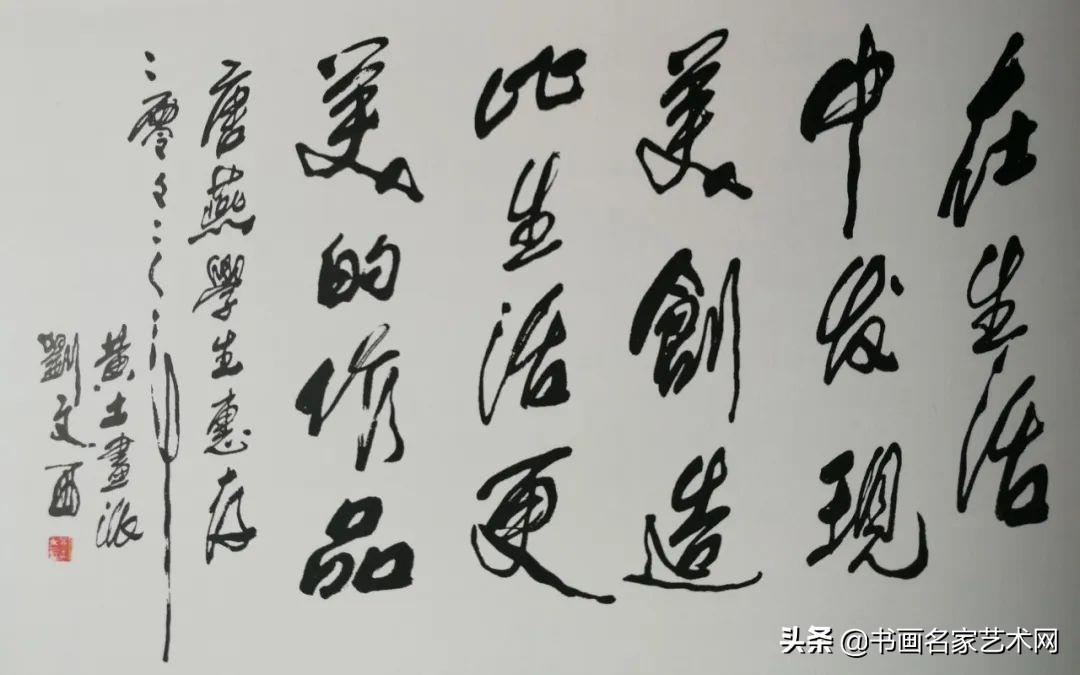 在生活
中发現
美創造
比生活更
美的作品
唐燕學生惠存
二零
黄土畫派
劉文西
头条 @书画名家艺术网